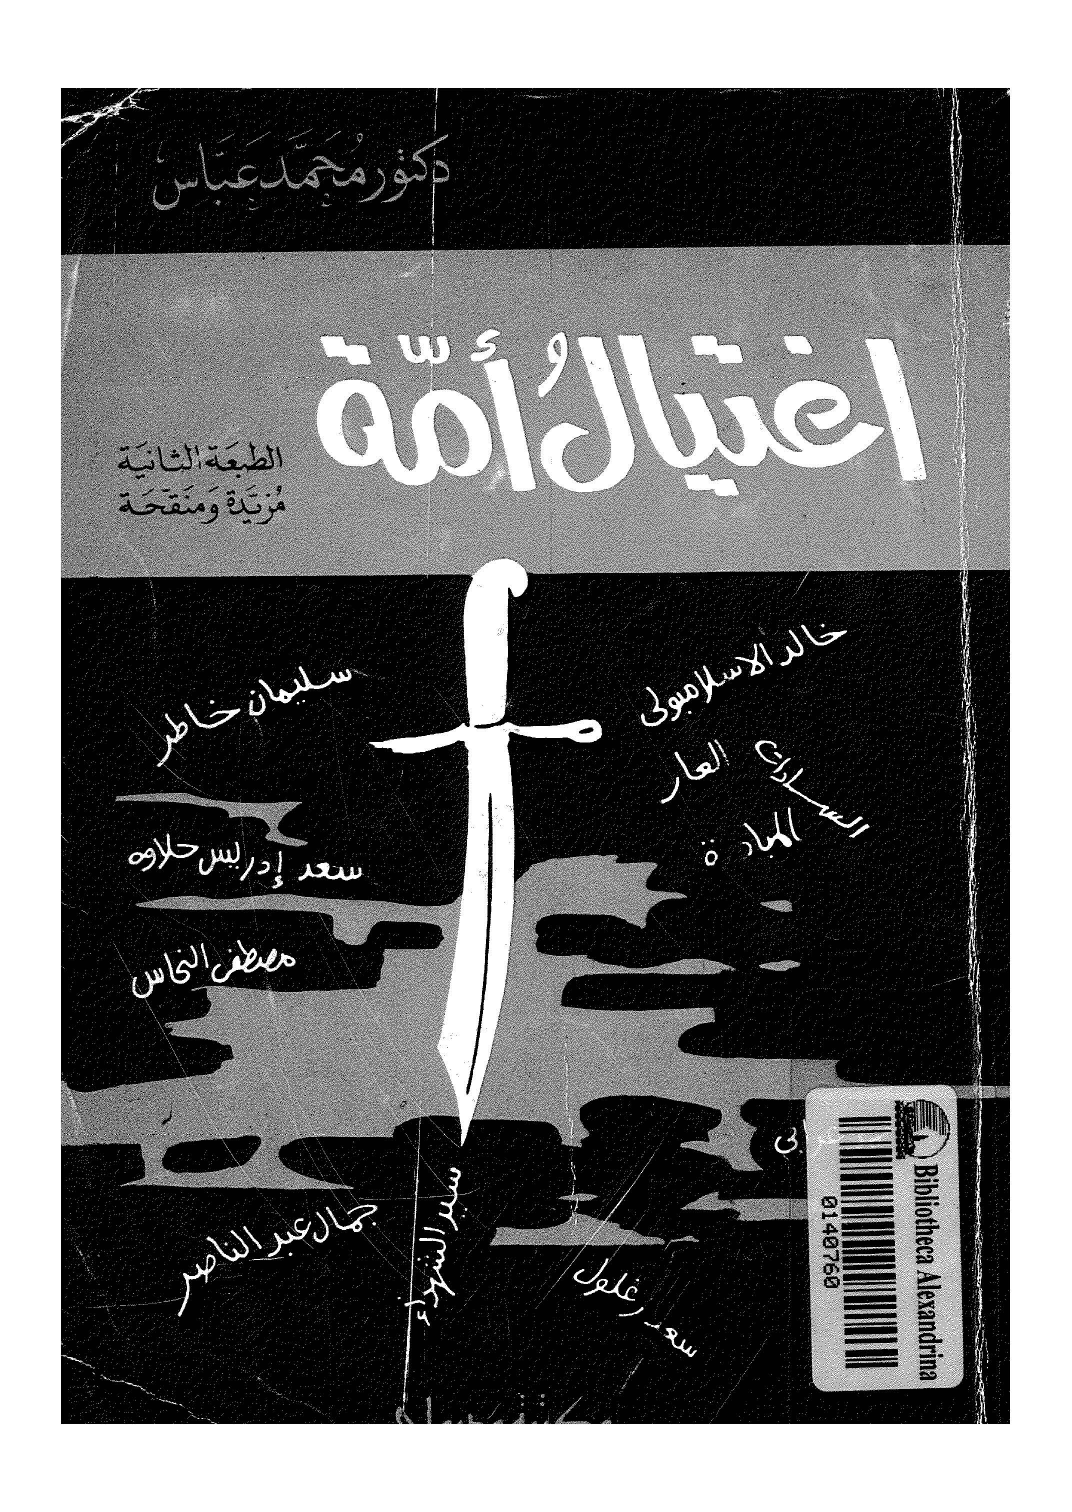 دكتور مُحَمَّد عَبَّاس
اغتيالُ أمّة
الطبعَة الثانيَة
مُزيَدة وَمنَقحَة
خالد الاسلامبولى
سليمان خاطر
السادات
العار
المبادرة
سعد إدريس حلاوه
مصطفى النحاس
جمال عبد الناصر
سعد زغلول
Bibliotheca Alexandrina
0140760